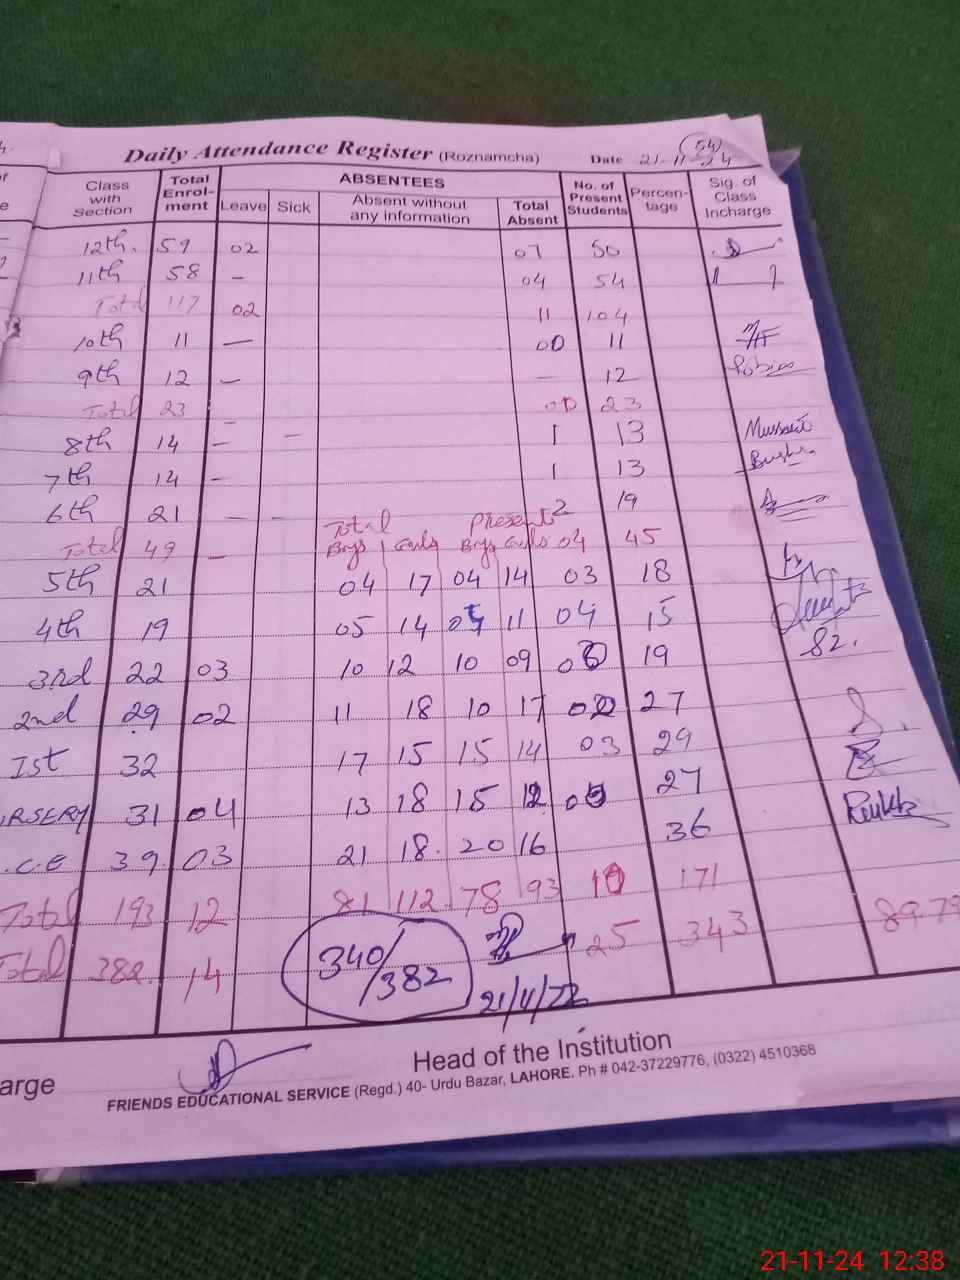 Daily Attendance Register (Roznamcha) Date 21-11-24 (54)
Class with Section Total Enrol-ment ABSENTEES Leave Sick Absent without any information Total Absent No. of Present Students Percen-tage Sig. of Class Incharge
12th. 59 02 07 50
11th 58 - 04 54
Total 117 02 11 104
10th 11 - 00 11
9th 12 - - 12
Total 23 00 23
8th 14 - - 1 13
7th 14 - 1 13
6th 21 - - 2 19
Total Present
Total 49 - Boys Girls Boys Girls 04 45
5th 21 04 17 04 14 03 18
4th 19 05 14 04 11 04 15
82.
3rd 22 03 10 12 10 09 19
2nd 29 02 11 18 10 17 02 27
Ist 32 17 15 15 14 03 29
RSERY 31 04 13 18 15 12 27
.C.E 39 03 21 18 20 16 36
Total 193 12 81 112 78 93 10 171
Total 382 14 340/382 25 343 89.79
21/11/22
arge Head of the Institution
FRIENDS EDUCATIONAL SERVICE (Regd.) 40- Urdu Bazar, LAHORE. Ph # 042-37229776, (0322) 4510368
21-11-24 12:38